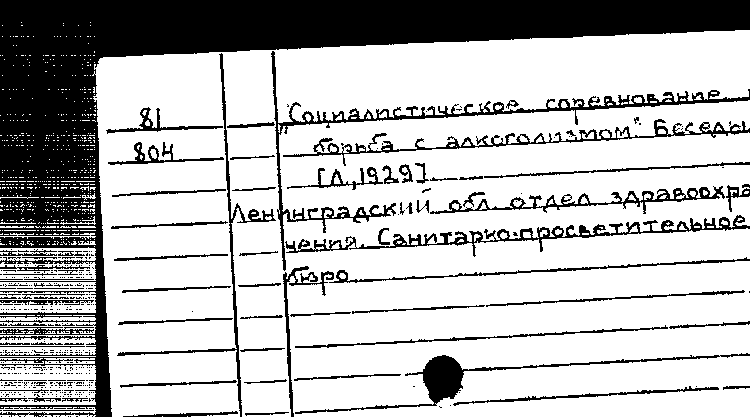 81
804
„Социалистическое соревнование
борьба с алкоголизмом". Беседы
[Л., 1929].
Ленинградский обл. отдел здравоохра
нения. Санитарно-просветительное
бюро